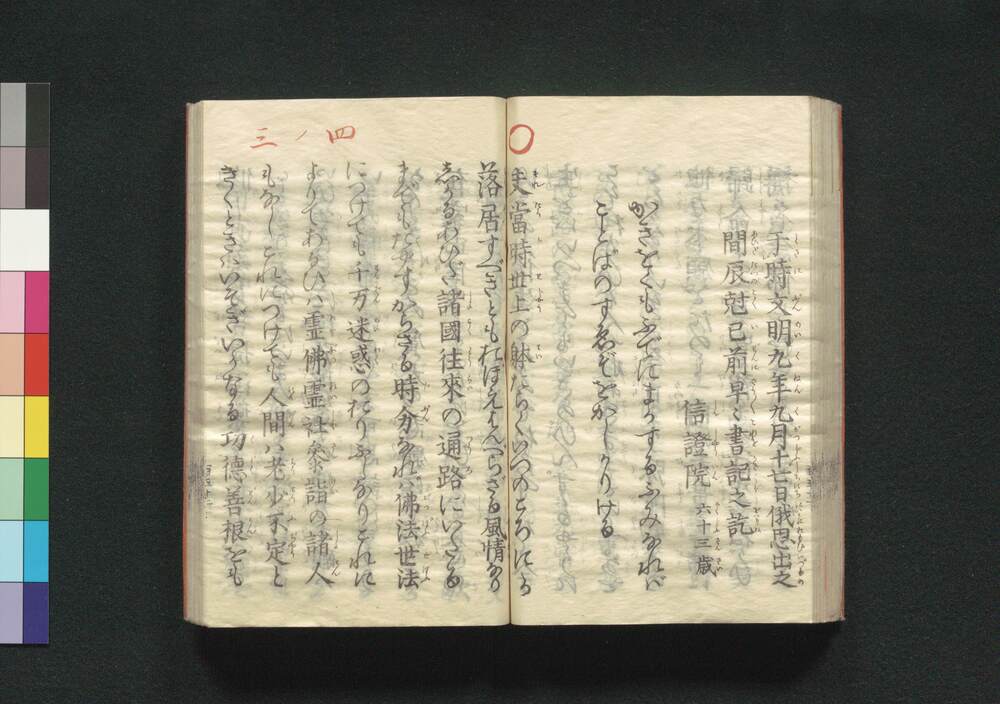 于時文明九年九月十七日俄思出之
間辰尅已前早々書記之訖
信證院六十三歳
かきをくもふでにまかするふみなれば
ことばのすゑぞをかしかりける
〇
四ノ三
夫當時世上の躰たらくいつのころにか
落居すべきともおぼえはんべらざる風情なり
しかるあひだ諸國往來の通路にいたるま
でもたやすからざる時分なれば佛法世法
につけても千万迷惑のおりふしなりこれに
よりてあるひは霊佛霊社參詣の諸人
もなしこれにつけても人間は老少不定と
きくときはいそぎいかなる功徳善根をも